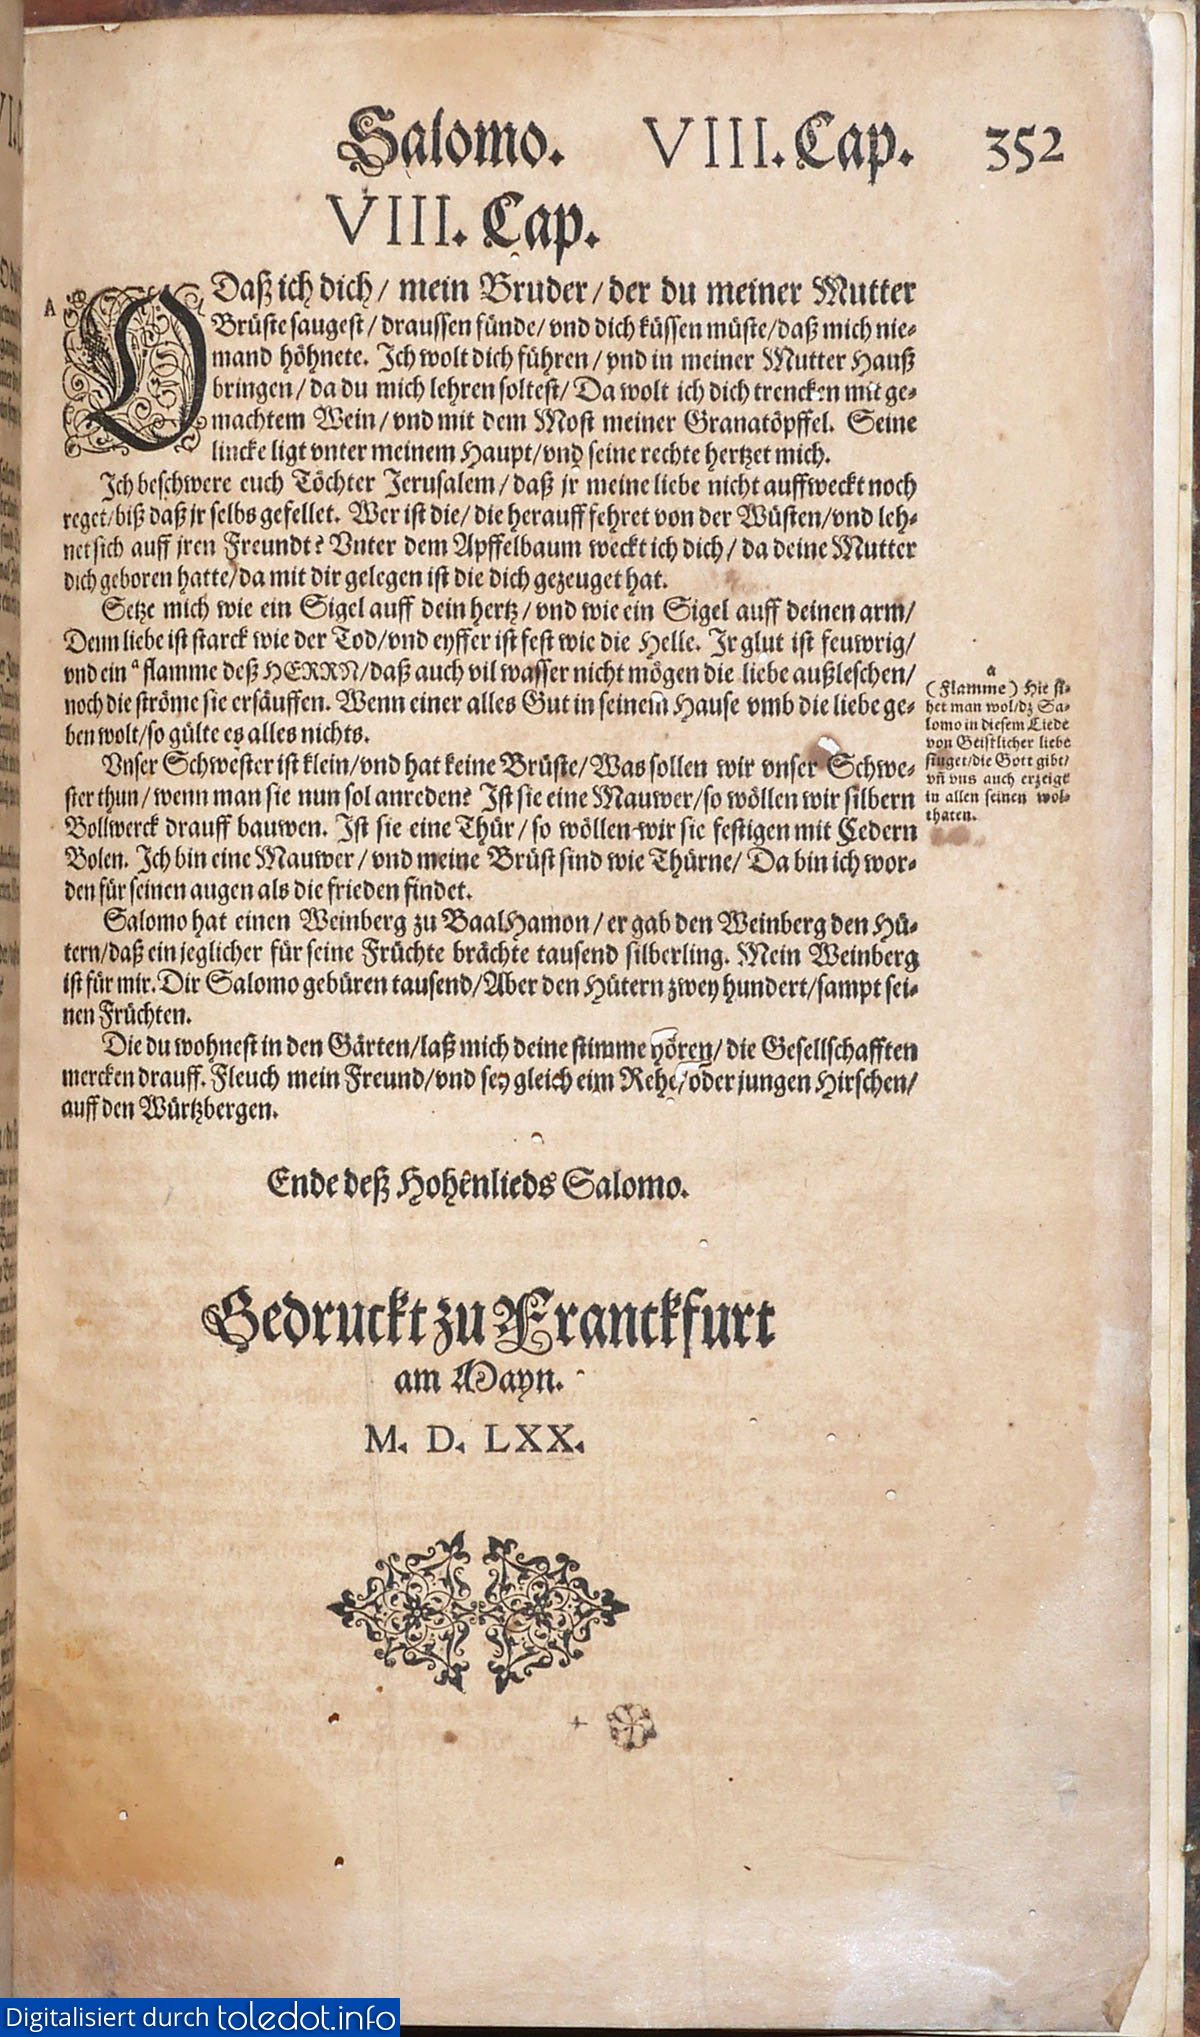 Salomo. VIII. Cap. 352
VIII. Cap.
A
O Daß ich dich/ mein Bruder/ der du meiner Mutter
Brüste saugest/ draussen fünde/ vnd dich küssen müste/ daß mich nie-
mand höhnete. Ich wolt dich führen/ vnd in meiner Mutter Hauß
bringen/ da du mich lehren soltest/ Da wolt ich dich trencken mit ge-
machtem Wein/ vnd mit dem Most meiner Granatöpffel. Seine
lincke ligt vnter meinem Haupt/ vnd seine rechte hertzet mich.
Ich beschwere euch Töchter Jerusalem/ daß jr meine liebe nicht auffweckt noch
reget/ biß daß jr selbs gefellet. Wer ist die/ die herauff fehret von der Wüsten/ vnd leh-
net sich auff jren Freundt? Vnter dem Apffelbaum weckt ich dich/ da deine Mutter
dich geboren hatte/ da mit dir gelegen ist die dich gezeuget hat.
Setze mich wie ein Sigel auff dein hertz/ vnd wie ein Sigel auff deinen arm/
Denn liebe ist starck wie der Tod/ vnd eyffer ist fest wie die Helle. Jr glut ist feuwrig/
vnd ein a flamme deß HERRN/ daß auch vil wasser nicht mögen die liebe außleschen/
noch die ströme sie ersäuffen. Wenn einer alles Gut in seinem Hause vmb die liebe ge-
ben wolt/ so gülte es alles nichts.
a
(Flamme) Hie si-
het man wol/ dz Sa-
lomo in diesem Liede
von Geistlicher liebe
singet/ die Gott gibt/
vñ vns auch erzeigt
in allen seinen wol-
thaten.
Vnser Schwester ist klein/ vnd hat keine Brüste/ Was sollen wir vnser Schwe-
ster thun/ wenn man sie nun sol anreden? Ist sie eine Mauwer/ so wöllen wir silbern
Bollwerck drauff bauwen. Ist sie eine Thür/ so wöllen wir sie festigen mit Cedern
Bolen. Ich bin eine Mauwer/ vnd meine Brüst sind wie Thürne/ Da bin ich wor-
den für seinen augen als die frieden findet.
Salomo hat einen Weinberg zu BaalHamon/ er gab den Weinberg den Hü-
tern/ daß ein jeglicher für seine Früchte brächte tausend silberling. Mein Weinberg
ist für mir. Dir Salomo gebüren tausend/ Aber den Hütern zwey hundert/ sampt sei-
nen Früchten.
Die du wohnest in den Gärten/ laß mich deine stimme hören/ die Gesellschafften
mercken drauff. Fleuch mein Freund/ vnd sey gleich eim Rehe/ oder jungen Hirschen/
auff den Würtzbergen.
Ende deß Hohenlieds Salomo.
Gedruckt zu Franckfurt
am Mayn.
M. D. LXX.
Digitalisiert durch toledot.info